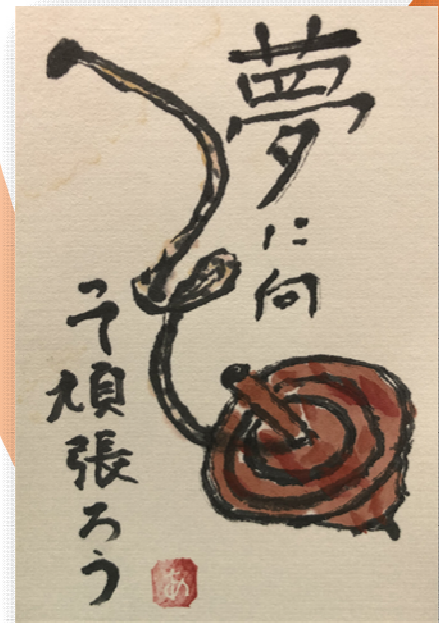 夢に向
って頑張ろう
あ